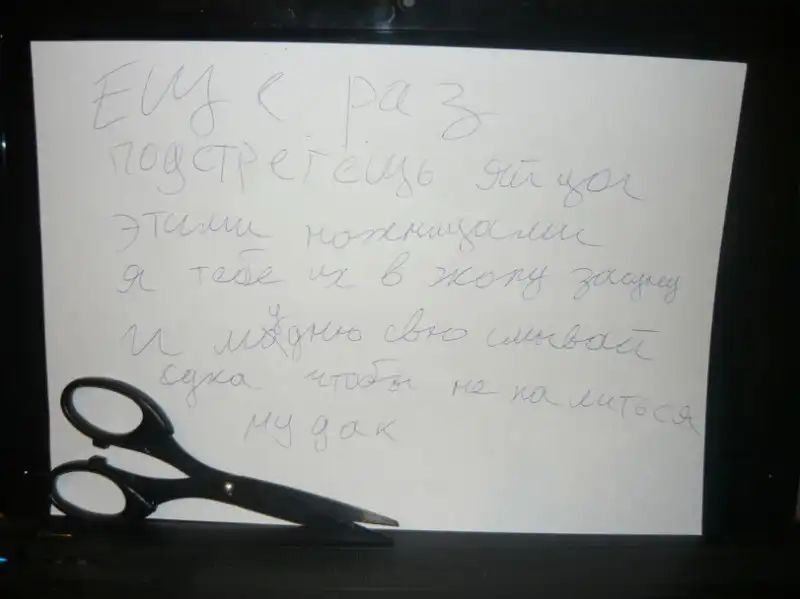 Еще раз
подстрегещь яйца
этими ножницами
я тебе их в жопу засуну
и мудню свою смывай
сука чтобы не палиться
мудак